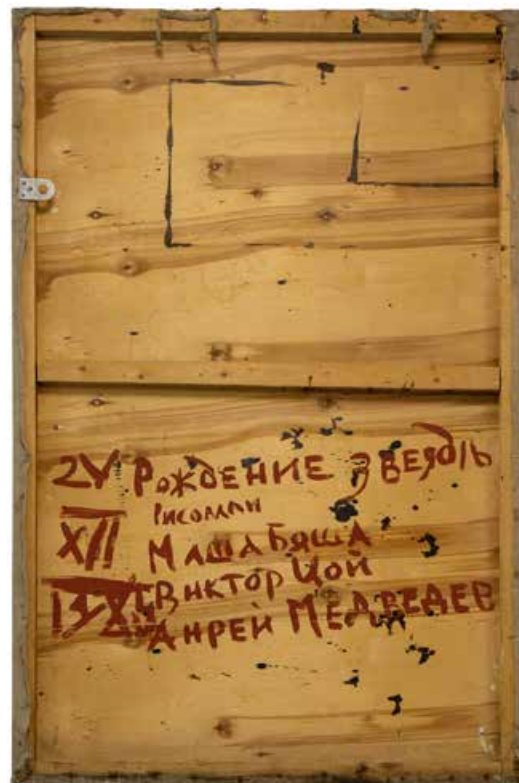 2V РОЖДЕНИЕ ЗВЕЗДЫ
РИСОВАЛИ
XII МАША БЯША
ВИКТОР ЦОЙ
АНРЕЙ МЕДВЕДЕВ